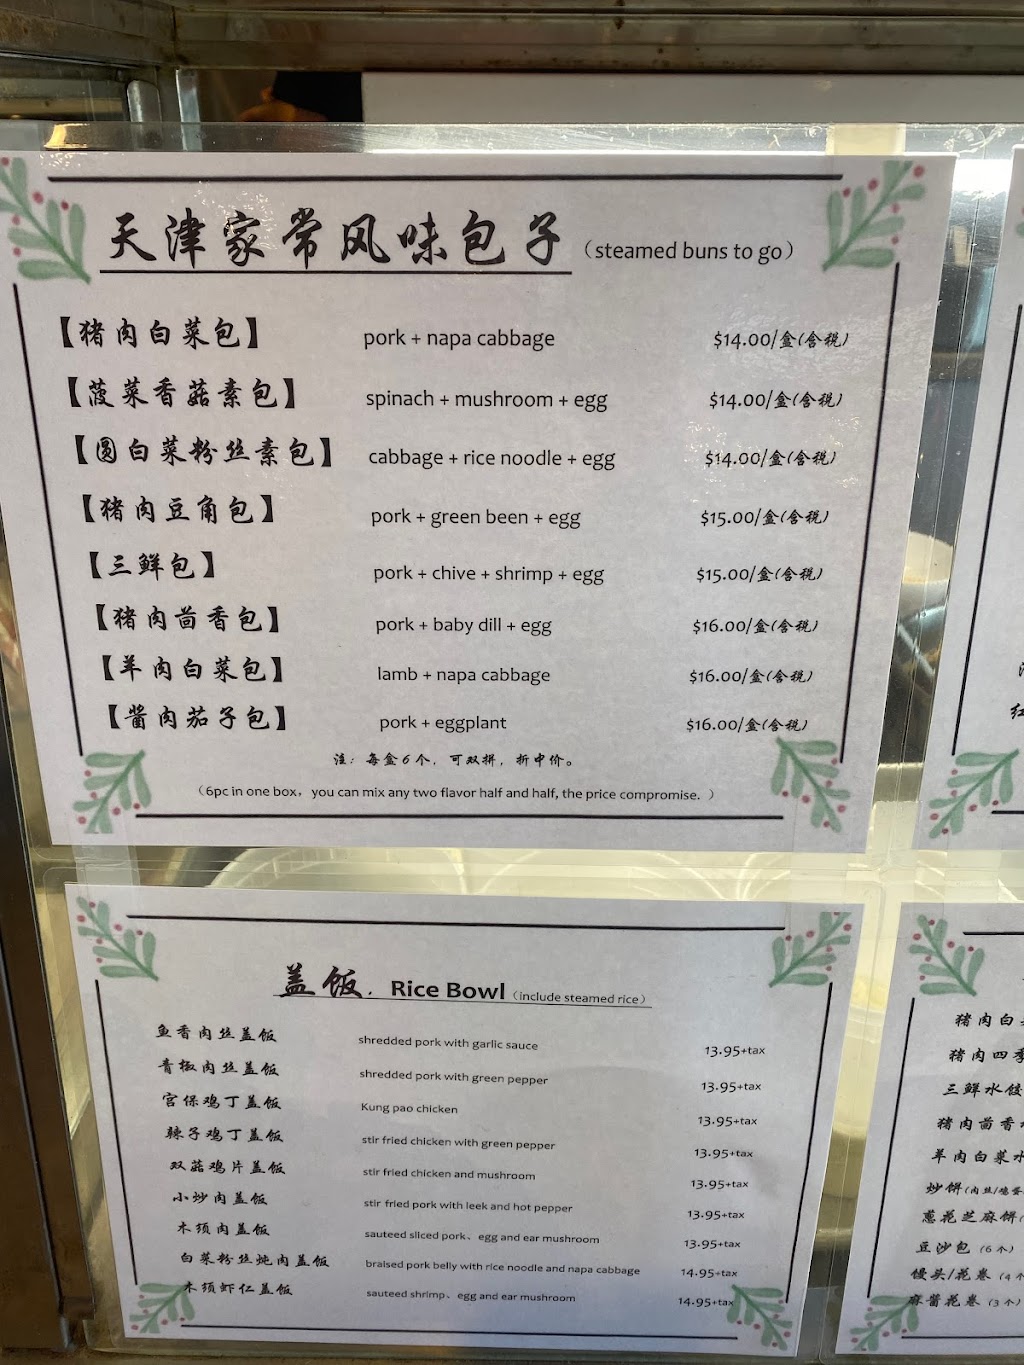 天津家常风味包子 (steamed buns to go)
【猪肉白菜包】 pork + napa cabbage $14.00/盒(含税)
【菠菜香菇素包】 spinach + mushroom + egg $14.00/盒(含税)
【圆白菜粉丝素包】 cabbage + rice noodle + egg $14.00/盒(含税)
【猪肉豆角包】 pork + green been + egg $15.00/盒(含税)
【三鲜包】 pork + chive + shrimp + egg $15.00/盒(含税)
【猪肉茴香包】 pork + baby dill + egg $16.00/盒(含税)
【羊肉白菜包】 lamb + napa cabbage $16.00/盒(含税)
【酱肉茄子包】 pork + eggplant $16.00/盒(含税)
注：每盒6个，可双拼，折中价。
（6pc in one box，you can mix any two flavor half and half, the price compromise. ）
盖饭. Rice Bowl (include steamed rice)
鱼香肉丝盖饭 shredded pork with garlic sauce 13.95+tax
青椒肉丝盖饭 shredded pork with green pepper 13.95+tax
宫保鸡丁盖饭 Kung pao chicken 13.95+tax
辣子鸡丁盖饭 stir fried chicken with green pepper 13.95+tax
双菇鸡片盖饭 stir fried chicken and mushroom 13.95+tax
小炒肉盖饭 stir fried pork with leek and hot pepper 13.95+tax
木须肉盖饭 sauteed sliced pork、egg and ear mushroom 13.95+tax
白菜粉丝炖肉盖饭 braised pork belly with rice noodle and napa cabbage 14.95+tax
木须虾仁盖饭 sauteed shrimp、egg and ear mushroom 14.95+tax
红
猪肉白
猪肉四季
三鲜水饺
猪肉茴香
羊肉白菜水
炒饼(肉丝/鸡蛋
葱花芝麻饼(
豆沙包 (6个)
馒头/花卷 (4个
麻酱花卷 (3个)